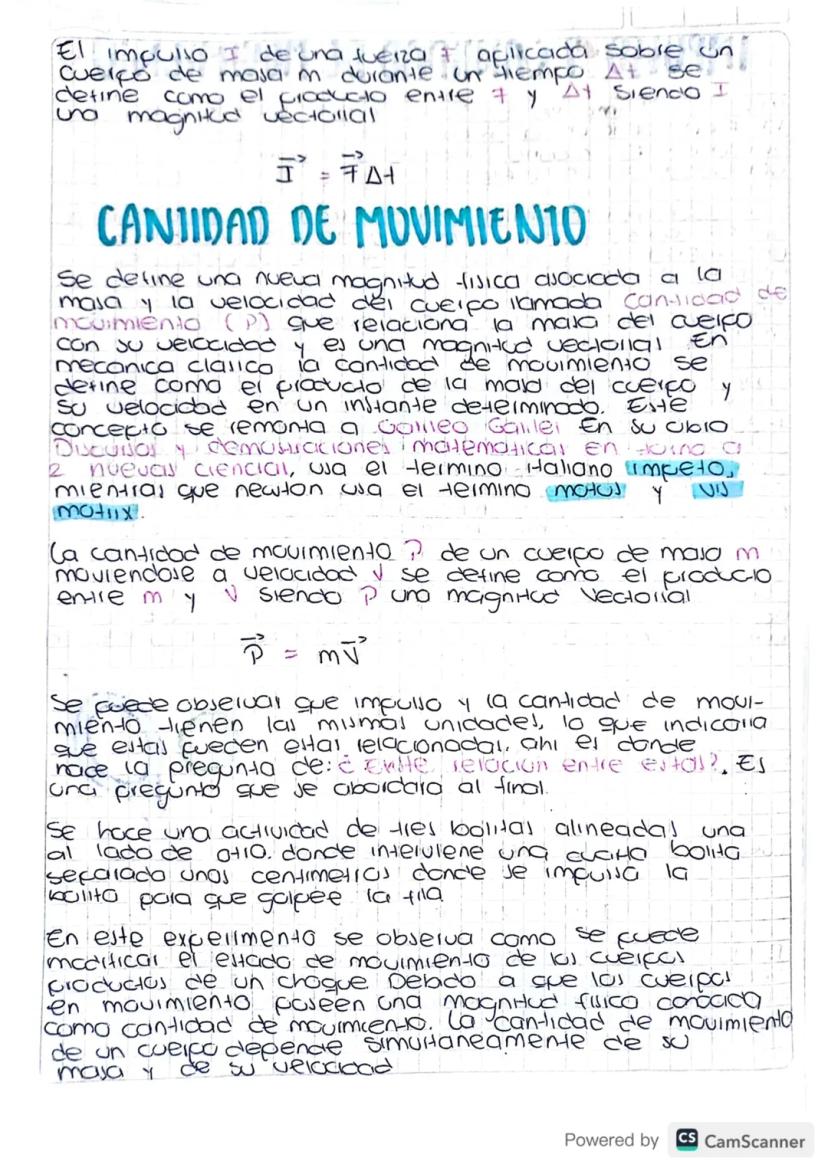 El impulso I de una fuerza F aplicada sobre un
cuerpo de masa m durante un tiempo Δt se
define como el producto entre F y Δt siendo I
una magnitud vectorial
I = F Δt
CANTIDAD DE MOVIMIENTO
Se define una nueva magnitud fisica asociada a la
masa y la velocidad del cuerpo llamada cantidad de
movimiento (P) que relaciona la masa del cuerpo
con su velocidad y es una magnitud vectorial En
mecanica clasica la cantidad de movimiento se
define como el producto de la masa del cuerpo y
su velocidad en un instante determinado. Este
concepto se remonta a Galileo Galilei En su libro
Discursos y demostraciones matematicas en torno a
2 nuevas ciencias, usa el termino italiano impeto,
mientras que newton usa el termino motus y vis
motrix.
La cantidad de movimiento P de un cuerpo de masa m
moviendose a velocidad V se define como el producto
entre m y V siendo P una magnitud Vectorial
P = mV
Se puede observar que impulso y la cantidad de movi-
miento tienen las mismas unidades, lo que indicaria
que estas pueden estar relacionadas. ahi es donde
nace la pregunta de: ¿Existe relacion entre estas?. Es
una pregunta que se abordara al final.
Se hace una actividad de tres bolitas alineadas una
al lado de otro. donde interviene una cuarta bolita
separada unos centimetros donde se impulsa la
bolita para que golpee la fila
En este experimento se observa como se puede
modificar el estado de movimiento de los cuerpos
productos de un choque Debido a que los cuerpos
en movimiento poseen una magnitud fisica conocida
como cantidad de movimiento. La cantidad de movimiento
de un cuerpo depende simultaneamente de su
masa y de su velocidad
Powered by CS CamScanner